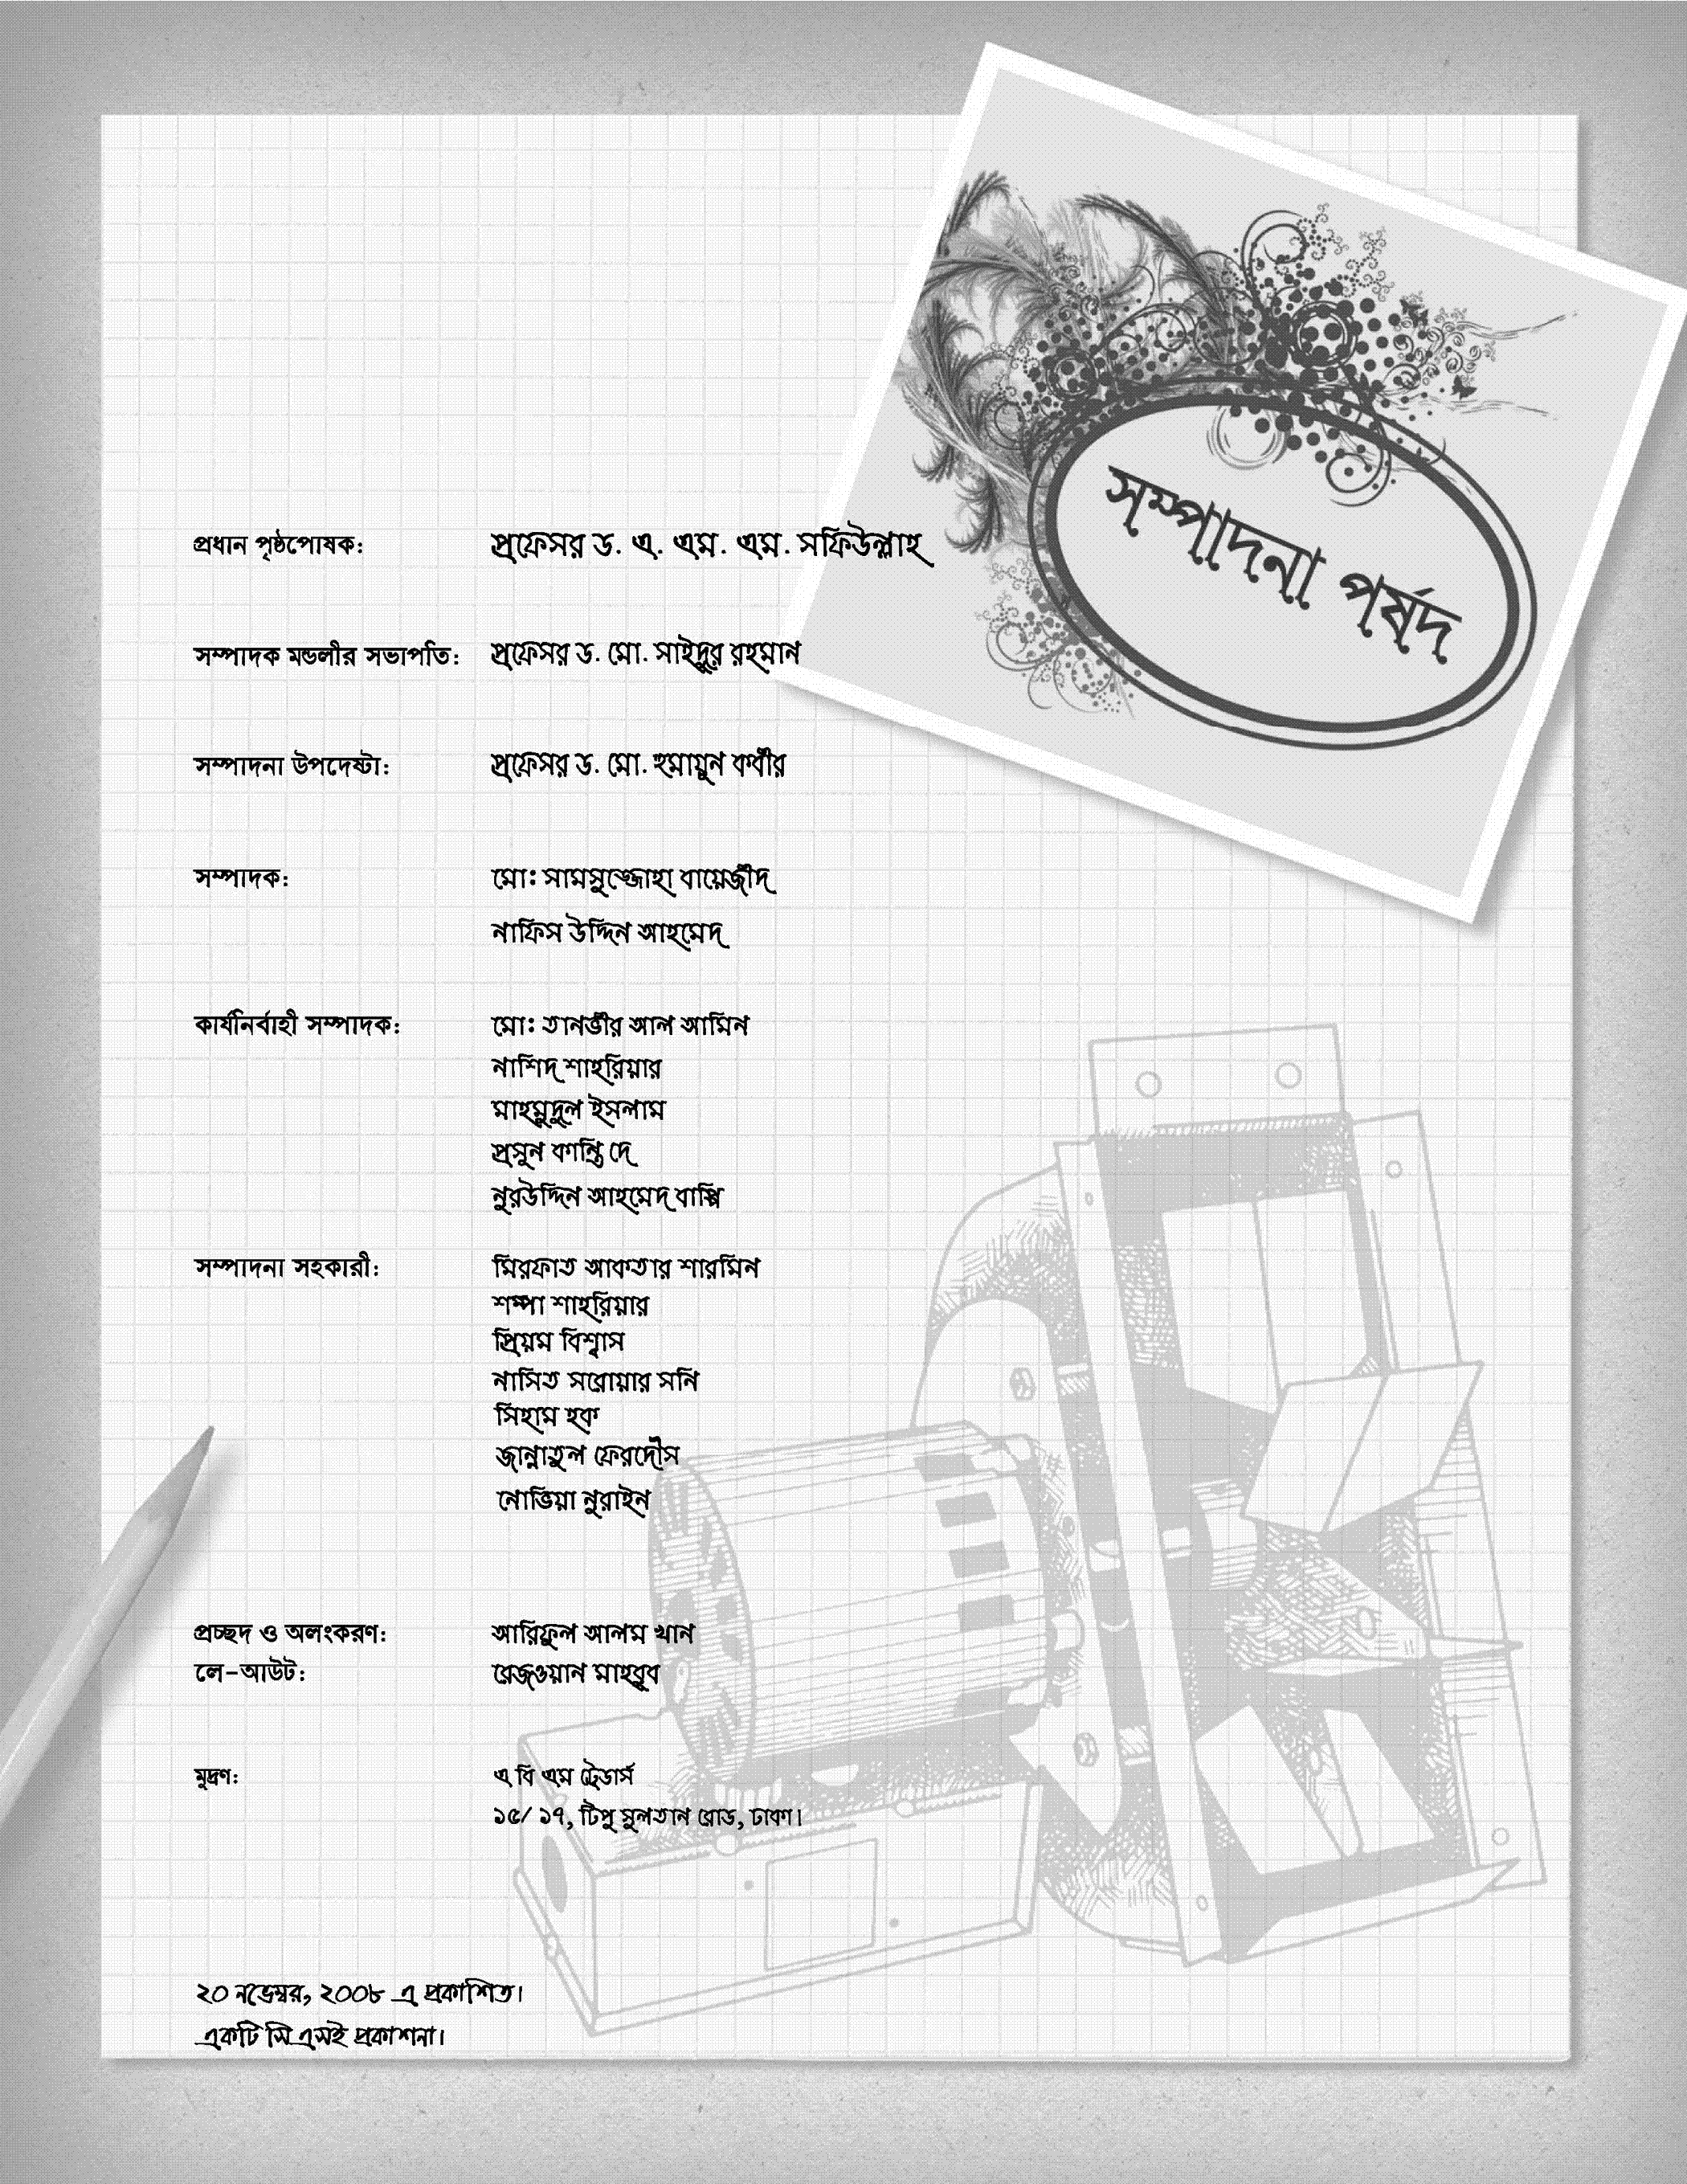 সম্পাদনা পর্ষদ
প্রধান পৃষ্ঠপোষক: প্রফেসর ড. এ. এম. এম. সফিউল্লাহ
সম্পাদক মন্ডলীর সভাপতি: প্রফেসর ড. মো. সাইদুর রহমান
সম্পাদনা উপদেষ্টা: প্রফেসর ড. মো. হুমায়ুন কবীর
সম্পাদক: মোঃ সামসুজ্জোহা বায়েজীদ
নাফিস উদ্দিন আহমেদ
কার্যনির্বাহী সম্পাদক: মোঃ তানভীর আল আমিন
নাশিদ শাহরিয়ার
মাহমুদুল ইসলাম
প্রসুন কান্তি দে
নুরউদ্দিন আহমেদ বাপ্পি
সম্পাদনা সহকারী: মিরফাত আকতার শারমিন
শম্পা শাহরিয়ার
প্রিয়ম বিশ্বাস
নাসিত সরোয়ার সনি
সিহাম হক
জান্নাতুল ফেরদৌস
নোভিয়া নুরাইন
প্রচ্ছদ ও অলংকরণ: আরিফুল আলম খান
লে-আউট: রেজওয়ান মাহবুব
মুদ্রণ: এ বি এম ট্রেডার্স
১৫/ ১৭, টিপু সুলতান রোড, ঢাকা।
২০ নভেম্বর, ২০০৮ এ প্রকাশিত।
একটি সি এসই প্রকাশনা।